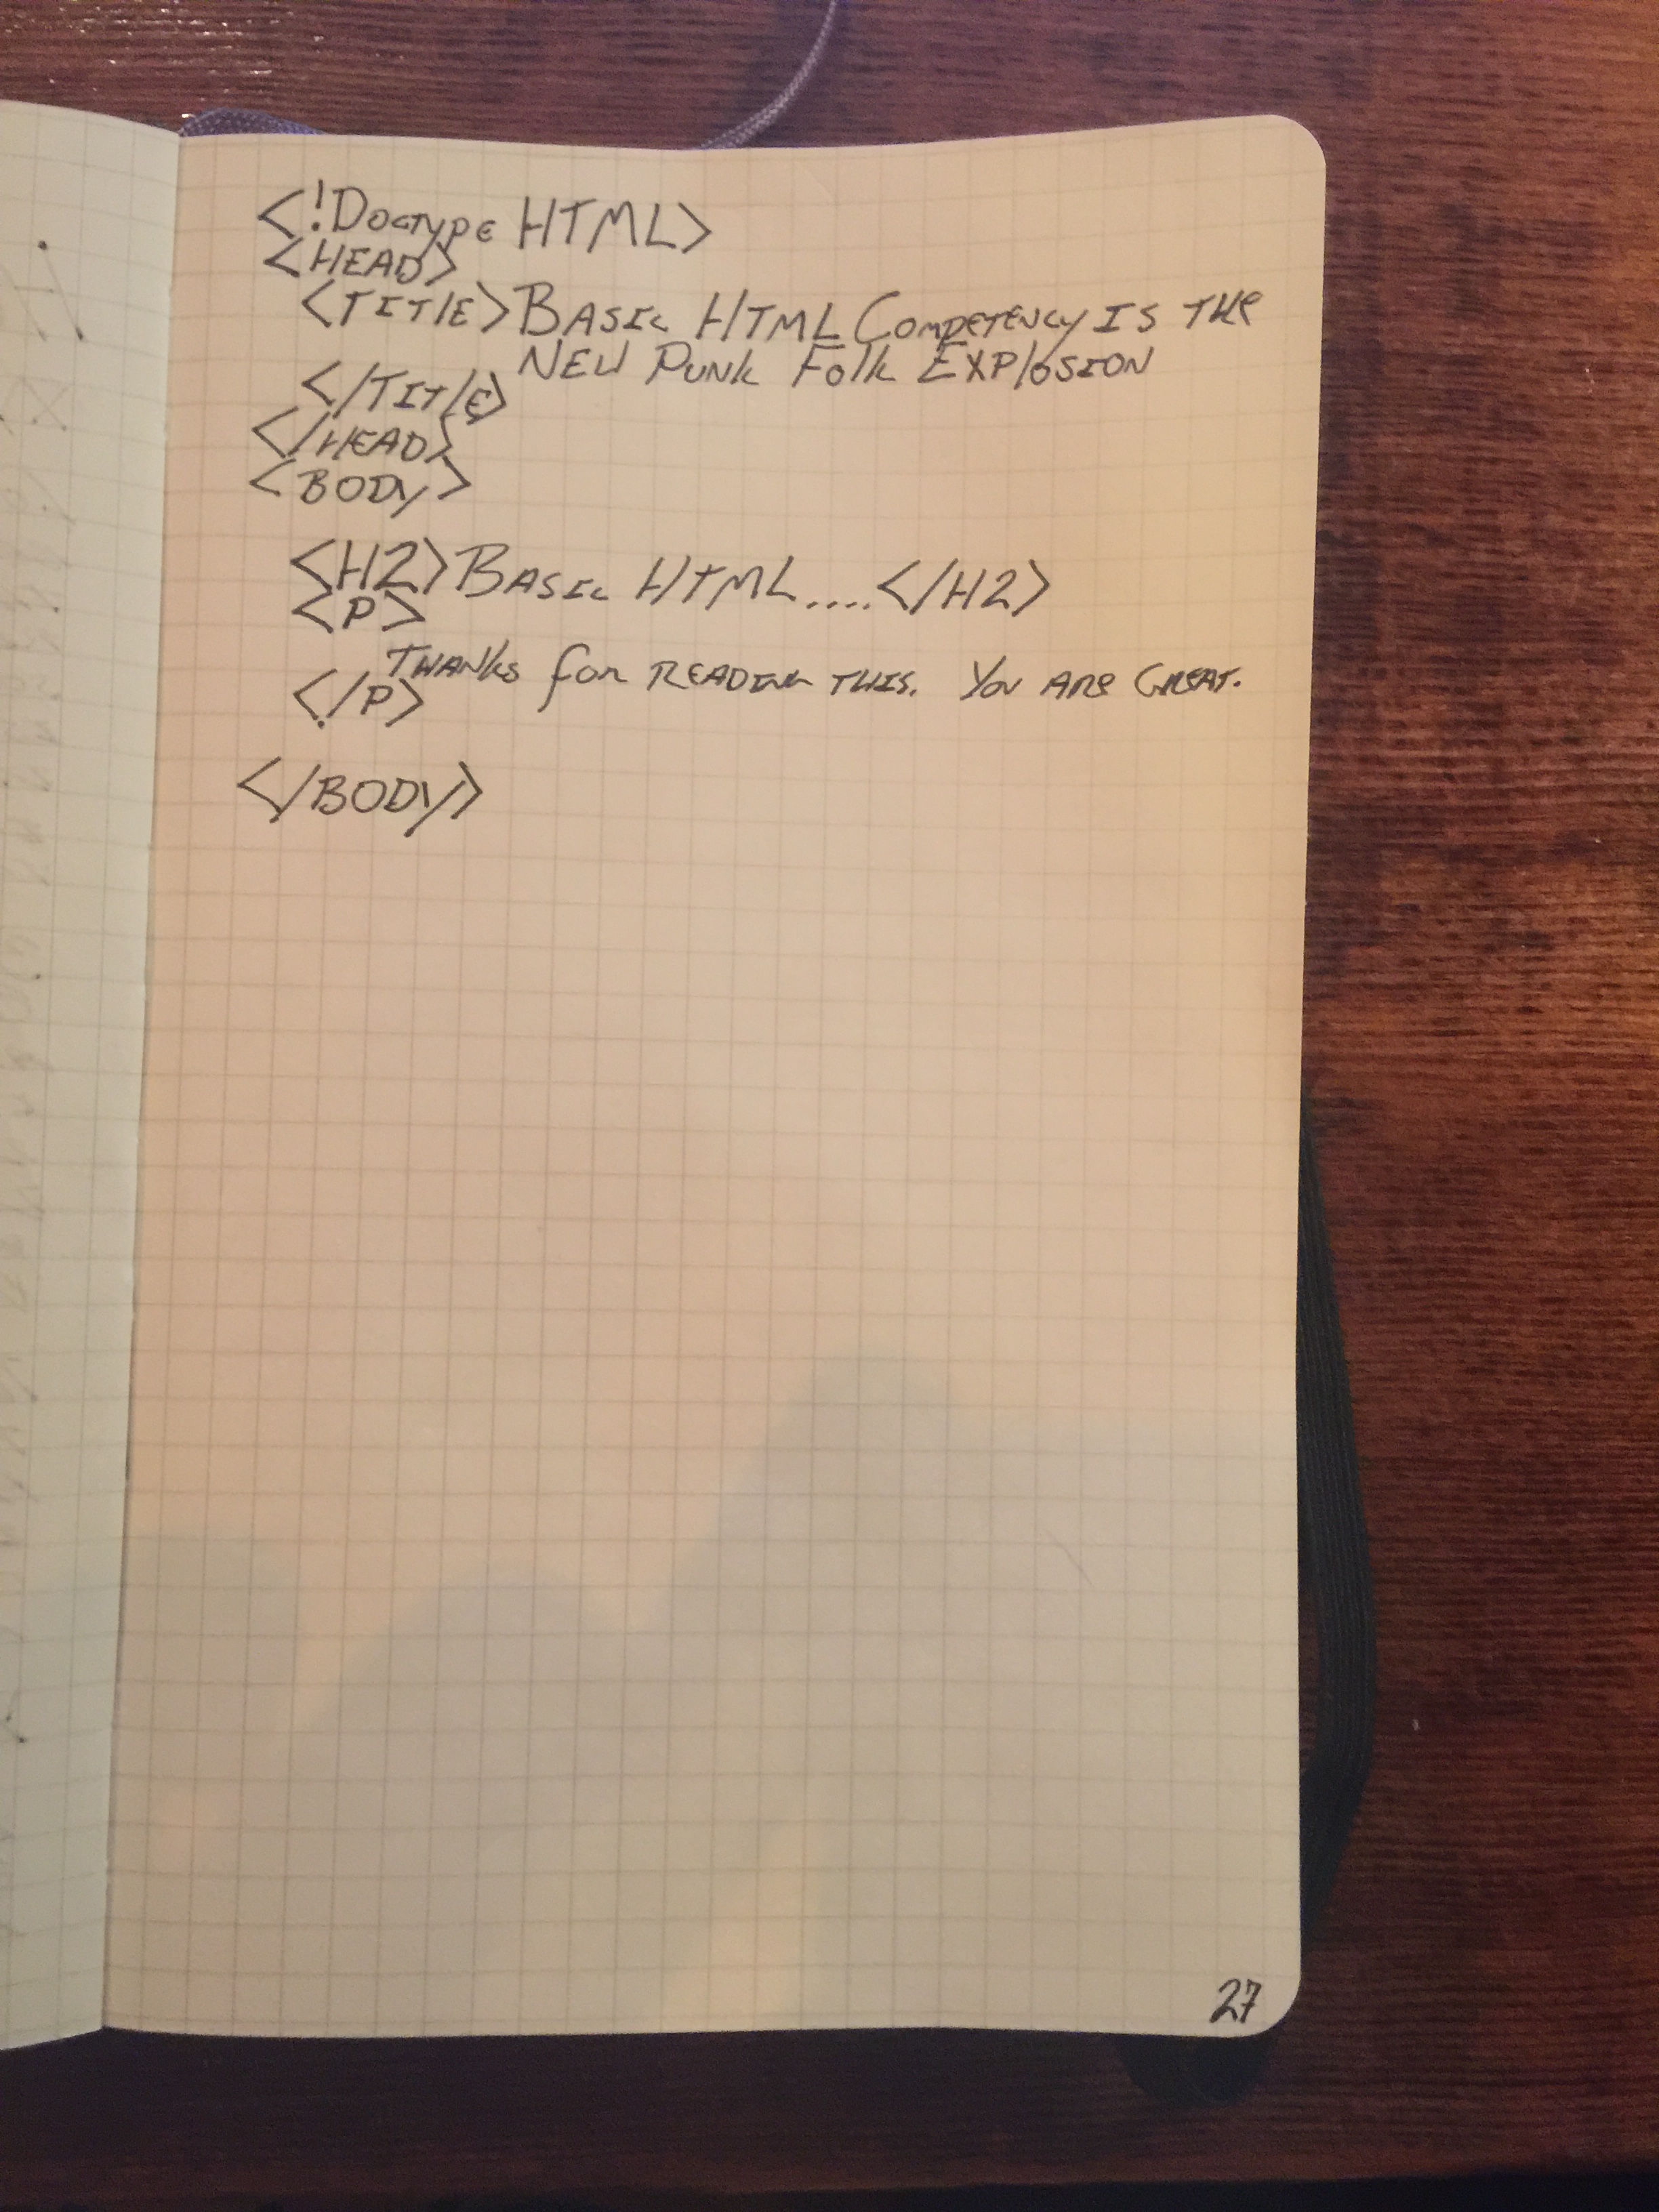 <!Doctype HTML>
<HEAD>
<TITlE>BASIC HTML COMPETENCY IS THe
NEW PUNK FOlK EXPlOSION
</TITlE>
</HEAD>
<BODY>
<H2>BASIC HTML....</H2>
<P>
THANKS for READING THIS. YOU ARe GREAT.
</P>
</BODY>
27